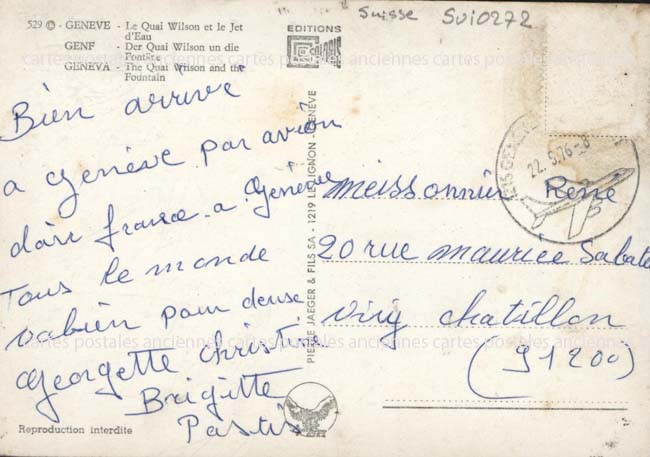 529 © - GENEVE - Le Quai Wilson et le Jet
d'Eau
GENF - Der Quai Wilson un die
Fontäne
GENEVA - The Quai Wilson and the
Fountain
EDITIONS
Suisse SUI0272
Bien arrivé
a genève par avion
d'air france a Genève
Tous le monde
vabien pour deuse
Georgette Christine
Brigitte
Pastis
Reproduction interdite
PIERRE JAEGER & FILS SA - 1219 LE LIGNON - GENÈVE
1215 GENEVE
22.5.76-8
meissonnier René
20 rue maurice Sabate
viry chatillon
(91200)
cartes postales anciennes cartes postales anciennes cartes postales anciennes